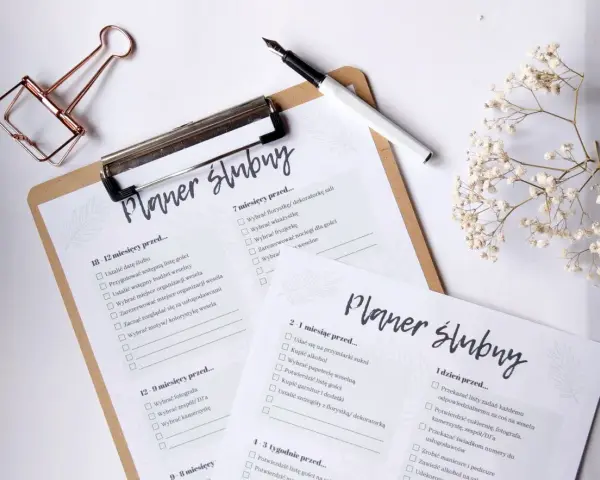 Planer ślubny
18 - 12 miesięcy przed...
Ustalić datę ślubu
Przygotować wstępną listę gości
Ustalić wstępny budżet weselny
Wybrać miejsce organizacji wesela
Zarezerwować miejsce organizacji wesela
Zacząć rozglądać się za usługodawcami
Wybrać motyw/ kolorystykę wesela
12 - 9 miesięcy przed...
Wybrać fotografa
Wybrać zespół/ DJ'a
Wybrać kamerzystę
9 - 8 miesięcy
7 miesięcy przed...
Wybrać florystkę/ dekoratorkę sali
Wybrać wizażystkę
Wybrać fryzjerkę
Zarezerwować noclegi dla gości
Planer ślubny
2 - 1 miesiąc przed...
Udać się na przymiarki sukni
Kupić alkohol
Wybrać papeterię weselną
Potwierdzić listę gości
Kupić garnitur i dodatki
Ustalić szczegóły z florystką/ dekoratorką
4 - 3 tygodnie przed...
Potwierdzić listę gości
1 dzień przed...
Przekazać listę zadań każdemu
odpowiedzialnemu za coś na weselu
Potwierdzić cukiernię, fotografa,
kamerzystę, zespół/DJ'a
Przekazać świadkom numery do
usługodawców
Zrobić manicure i pedicure
Zawieźć alkohol na salę